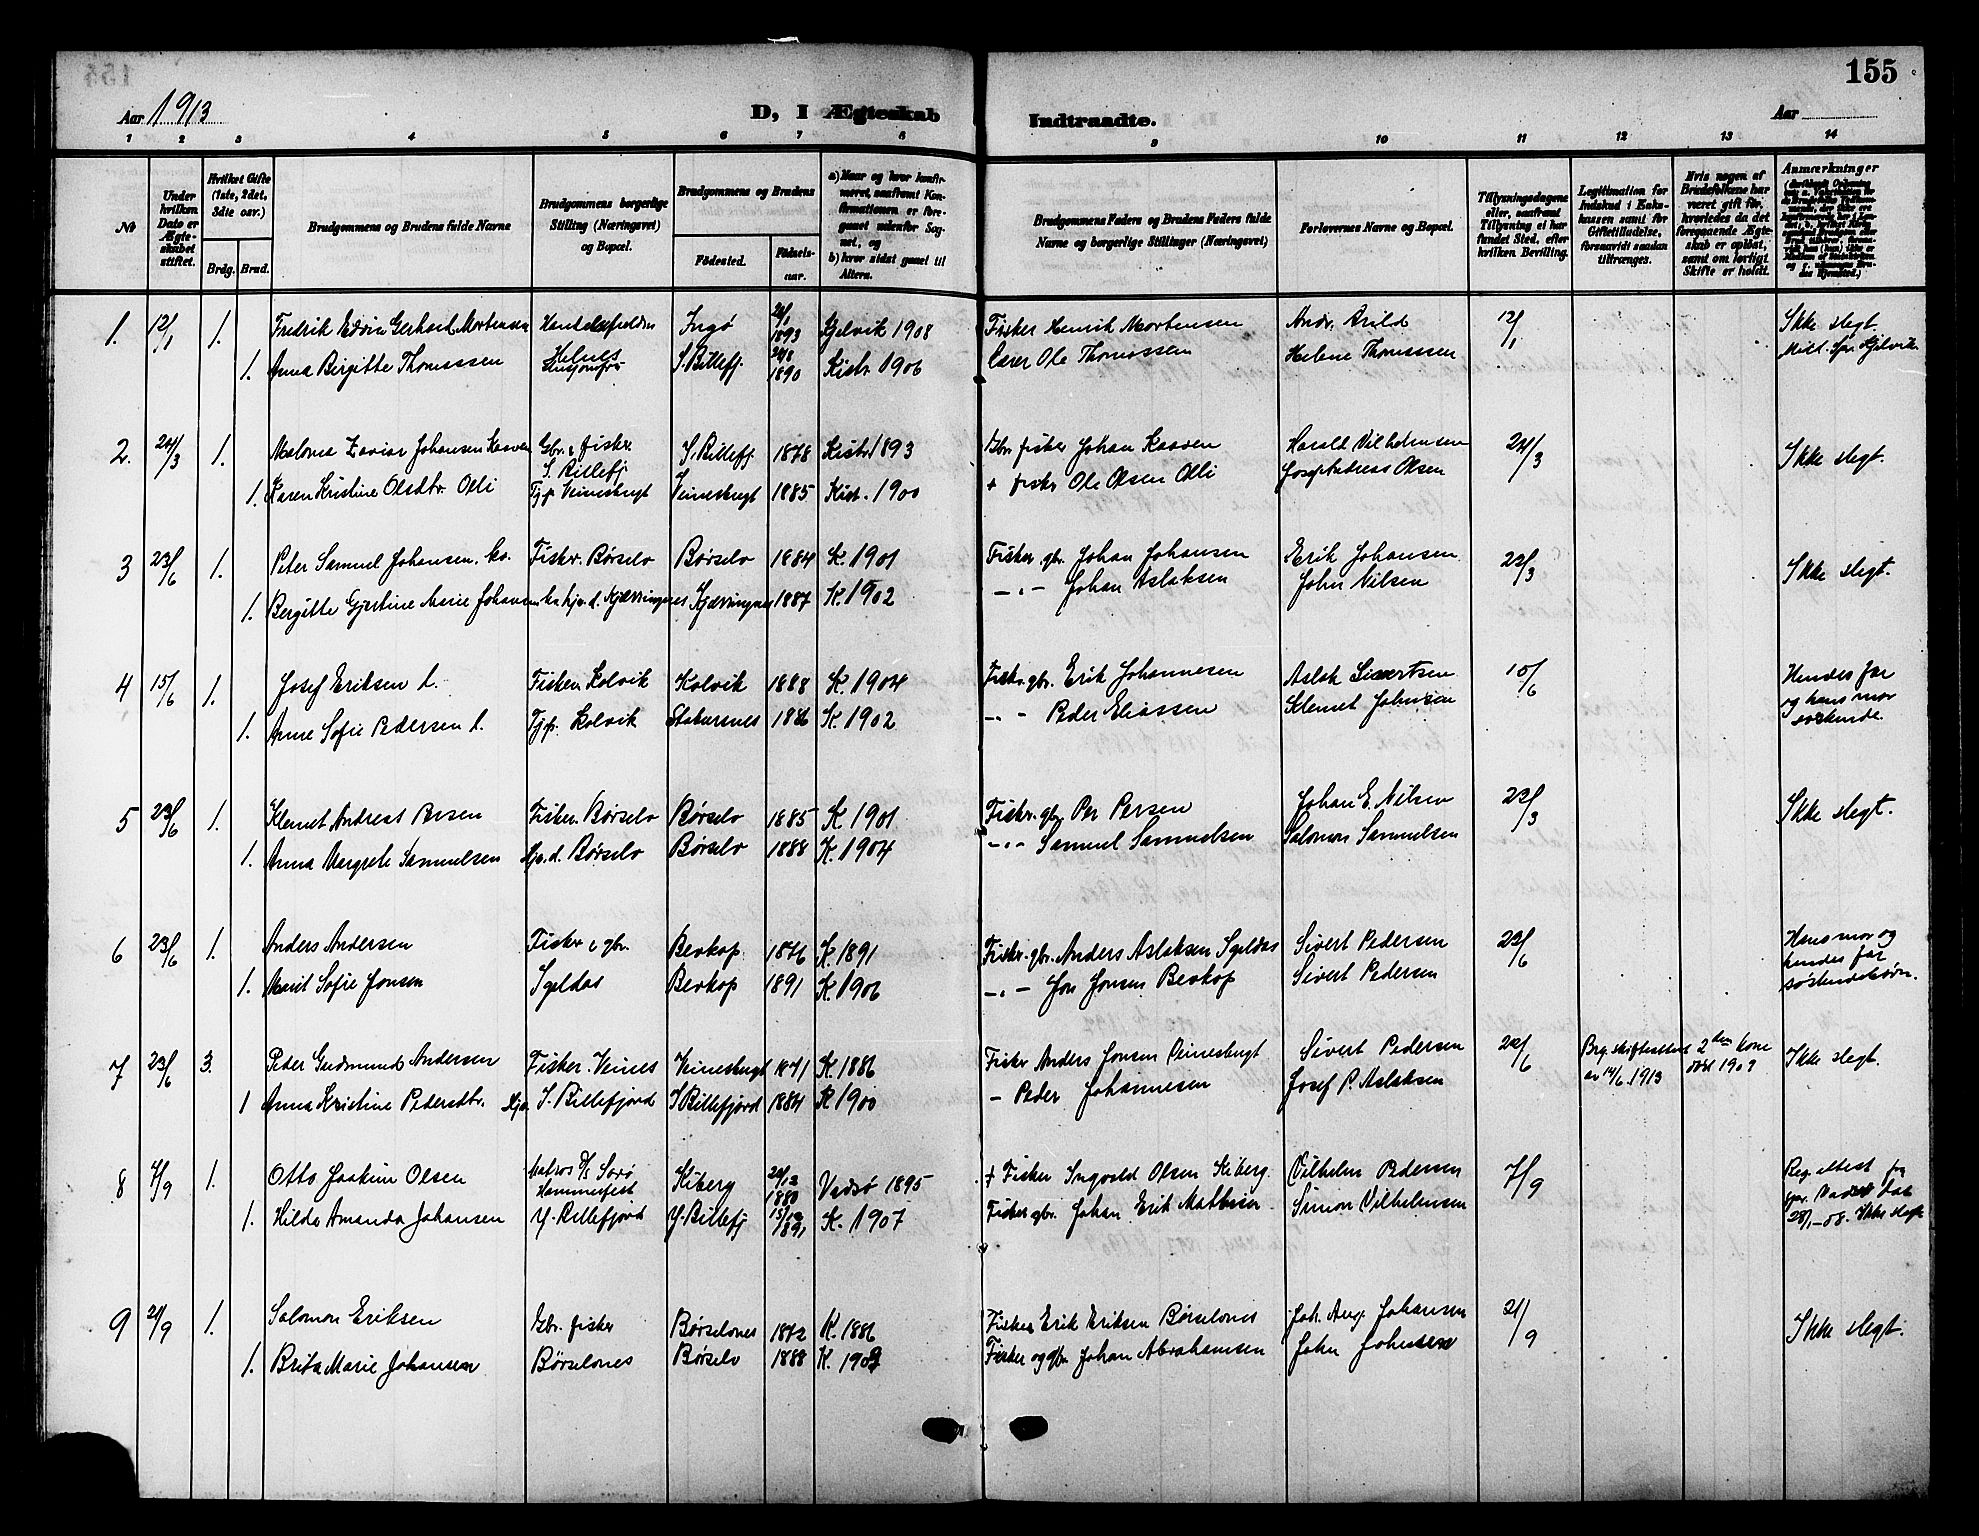 155
Aar 1913
D, I Ægteskab
Indtraadte.
Aar
1 2 3 4 5 6 7 8 9 10 11 12 13 14
№
Under hvilken Dato er Ægteskabet stiftet.
Hvilket Gifte (1ste, 2det, 3die osv.)
Brdg. Brud.
Brudgommens og Brudens fulde Navne
Brudgommens borgerlige Stilling (Næringsvei) og Bopæl.
Brudgommens og Brudens
Fødested.
Fødselsaar.
a) Naar og hvor konfirmeret, saafremt Konfirmationen er foregaaet udenfor Sognet, og
b) hvor sidst gaaet til Alters.
Brudgommens Faders og Brudens Faders fulde Navne og borgerlige Stillinger (Næringsvei)
Forlovernes Navne og Bopæl.
Tillysningsdagene eller, saafremt Tillysning ei har fundet Sted, efter hvilken Bevilling.
Legitimation for Indskud i Enkekassen samt for Giftetilladelse, forsaavidt saadan tiltrænges.
Hvis nogen af Brudefolkene har været gift før, hvorledes da det foregaaende Ægteskab er opløst, samt om lovligt Skifte er holdt.
Anmærkninger
1. 12/1 1. Fredrik Edvin Gerhard Mortensen Ingö 1893 Kjelvik 1908 Fisker Henrik Mortensen Andr. Arild 12/1 Ikke slegt.
1. Anna Birgitte Thomassen Helnes S. Billefj. 24/8 1890 Kistr. 1906 Lærer Ole Thomassen Helene Thomassen
2. 24/3 1. Johansen Kaaven Gbr. & fisker S. Billefj 1878 Kistr. 1893 Gbr. fisker Johan Kaaven Harald Vilhelmsen 24/3 Ikke slegt.
S. Billefj
1. Karen Kristine Olsdtr. Olli Tj.p. Veinesbugt Veinesbugt 1885 Kist. 1900 + fisker Ole Olsen Olli Olsen
3 23/6 1. Peter Samuel Johansen. kv. Fisker. Børselv Børselv 1884 K 1901 Fisker gbr. Johan Johansen Erik Johansen 23/3 Ikke slegt.
1. Bergitte Gjertine Marie Johansen Kjærringnes 1887 K. 1902 -"- Johan Aslaksen John Nilsen
4 15/6 1. Josef Eriksen l. Fisker Kolvik Kolvik 1888 K. 1904 Fisker. gbr. Erik Johannesen Aslak Sivertsen 15/6 Hendes far
og hans mor
søskende.
1. Anne Sofie Pedersen l. Tj.p. Kolvik Stabursnes 1886 K. 1902 -"- Peder Eliassen Klemet Johnsen
5 23/6 1. Klemet Andreas Persen Fisker. Børselv Børselv 1885 K 1901 Fisker. gbr Per Persen Johan E. Nilsen 23/3 Ikke slegt.
1. Anna Margrete Samuelsen Hj.v.d. Børselv Børselv 1888 K. 1904 -"- Samuel Samuelsen Salomon Samuelsen
6 23/6 1. Anders Andersen Fisker & gbr. Bevkop 1876 K. 1891 Fisker. gbr. Anders Aslaksen Igeldas Sivert Pedersen 23/6 Hans mor og
hendes far
søskendebørn.
1. Marit Sofie Jonsen Igeldas Bevkop 1891 K. 1906 -"- Jon Jonsen Bevkop Sivert Pedersen
7 23/6 3. Peder Gudmund Andersen Fisker. Veines Veinesbugt 1871 K. 1886 Fisker Anders Jonsen Veinesbugt Sivert Pedersen 22/6 Brg. skifteattest
av 14/6 1913 2den kone
død 1909 Ikke slegt.
1 Anna Kristine Pedersdtr. S. Billefjord S. Billefjord 1884 K 1900 - Peder Johannesen Josef P. Aslaksen
8 7/9 1. Otto Joakim Olsen Matros D/S Sorø
Hammerfest Kiberg 24/12 1880 Vadsø 1895 + Fisker Ingvald Olsen Kiberg. Vilhelm Pedersen 7/9 Reg. attest fra
28/1-08. Ikke slegt
1. Hilda Amanda Johansen Y. Billefjord Y. Billefj 15/12 1891 K. 1907 Fisker gbr. Johan Erik Mathisen Simon Vilhelmsen
9 21/9 1. Salomon Eriksen Gbr. fisker Børselvnes 1872 K. 1886 Fisker Erik Eriksen Børselvnes Joh. Aug. Johansen 21/9 Ikke slegt.
1. Brita Marie Johansen Børselvnes Børselv 1888 K. 1903 Fisker og gbr. Johan Abrahamsen John Johnsen